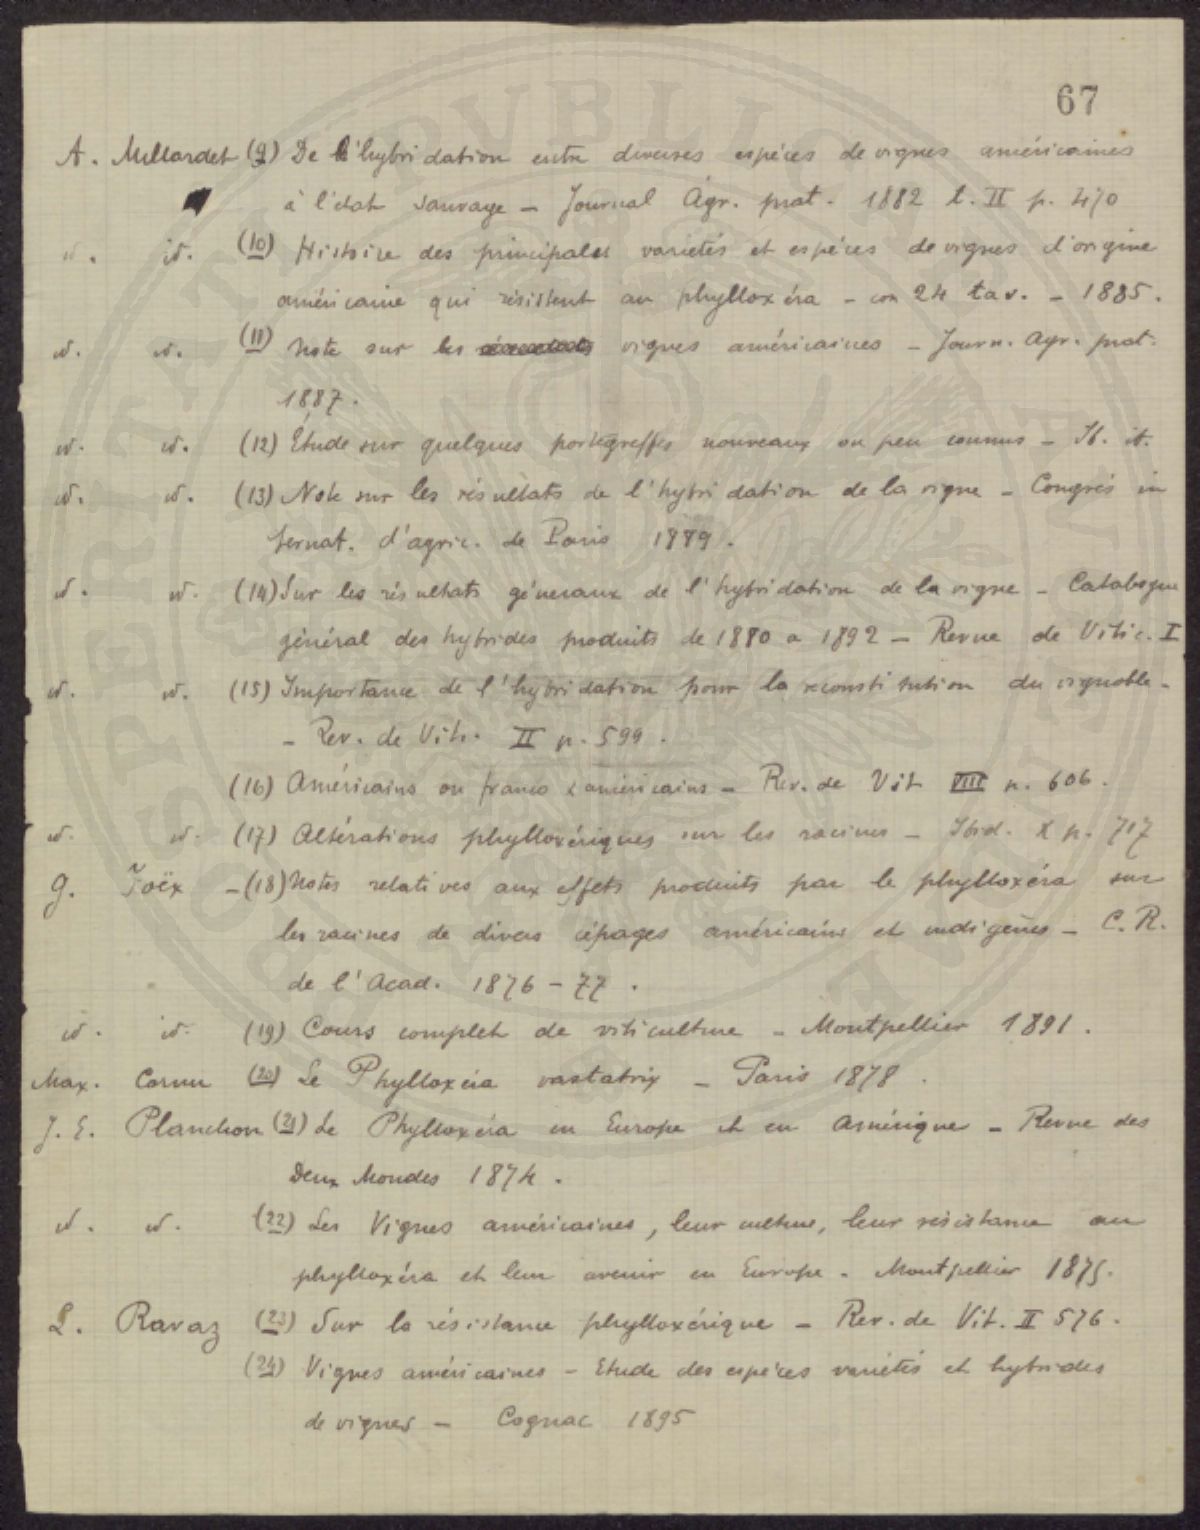 67
A. Millardet (9) De l'hybridation entre diverses espéces de vignes américaines
à l'état sauvage — Journal Agr. prat. 1882 t. II p. 470
id. id. (10) Histoire des principales varietés et espéces de vignes d'origine
américaine qui résistent au phylloxéra — con 24 tav. — 1885.
id. id. (11) Note sur les vignes américaines — Journ. Agr. prat.
1887.
id. id. (12) Étude sur quelques portegreffes nouveaux ou peu connus — Ib. it.
id. id. (13) Note sur les résultats de l'hybridation de la vigne — Congrés in
ternat. d'agric. de Paris 1889.
id. id. (14) Sur les résultats géneraux de l'hybridation de la vigne — Catalogue
général des hybrides produits de 1880 a 1892 — Revue de Vitic. I
id. id. (15) Importance de l'hybridation pour la reconstitution du vignoble —
— Rev. de Vit. II p. 599.
(16) Américains ou franco x américains — Rev. de Vit VIII p. 606.
id. id. (17) Altérations phylloxériques sur les racines — Ibid. X p. 717
G. Foëx — (18) Notes relatives aux effets produits par le phylloxéra sur
les racines de divers cépages américains et indigènes — C. R.
de l'Acad. 1876 — 77.
id. id. (19) Cours complet de viticulture — Montpellier 1891.
Max. Cornu (20) Le Phylloxéra vastatrix — Paris 1878.
J. E. Planchon (21) Le Phylloxéra en Europe et en Amérique — Revue des
Deux Mondes 1874.
id. id. (22) Les Vignes américaines, leur culture, leur résistance au
phylloxéra et leur avenir en Europe — Montpellier 1875.
L. Ravaz (23) Sur la résistance phylloxérique — Rev. de Vit. II 576.
(24) Vignes américaines — Etude des espéces varietés et hybrides
de vignes — Cognac 1895